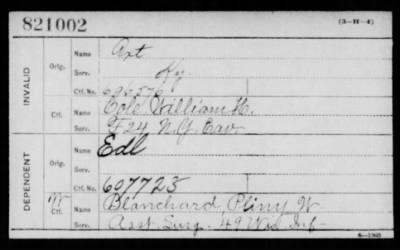 821002 (3-H-4)
INVALID
Orig. Name Art
Serv. Ky.
Ctf. No. 696576
Ctf. Name Cole William H.
Serv. F 24 N.Y. Cav
DEPENDENT
Orig. Name Edl
Serv.
Ctf. No. 607723
W Ctf. Name Blanchard, Pliny W
Serv. Asst. Surg. 49 Wis Inf